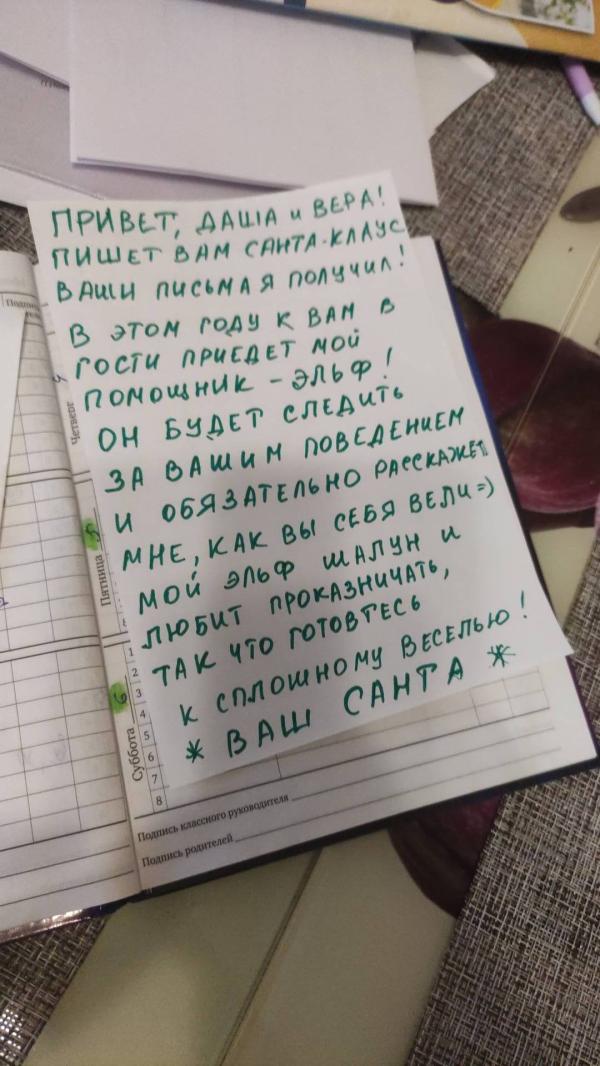 ПРИВЕТ, ДАША и ВЕРА!
ПИШЕТ ВАМ САНТА-КЛАУС
ВАШИ ПИСЬМА Я ПОЛУЧИЛ!
В ЭТОМ ГОДУ К ВАМ В
ГОСТИ ПРИЕДЕТ МОЙ
ПОМОЩНИК - ЭЛЬФ!
ОН БУДЕТ СЛЕДИТЬ
ЗА ВАШИМ ПОВЕДЕНИЕМ
И ОБЯЗАТЕЛЬНО РАССКАЖЕТ
МНЕ, КАК ВЫ СЕБЯ ВЕЛИ =)
МОЙ ЭЛЬФ ШАЛУН И
ЛЮБИТ ПРОКАЗНИЧАТЬ,
ТАК ЧТО ГОТОВТЕСЬ
К СПЛОШНОМУ ВЕСЕЛЬЮ!
* ВАШ САНТА *
Четверг
Пятница
Суббота 6
1
2
3
4
5
6
7
8
Подпись классного руководителя
Подпись родителей